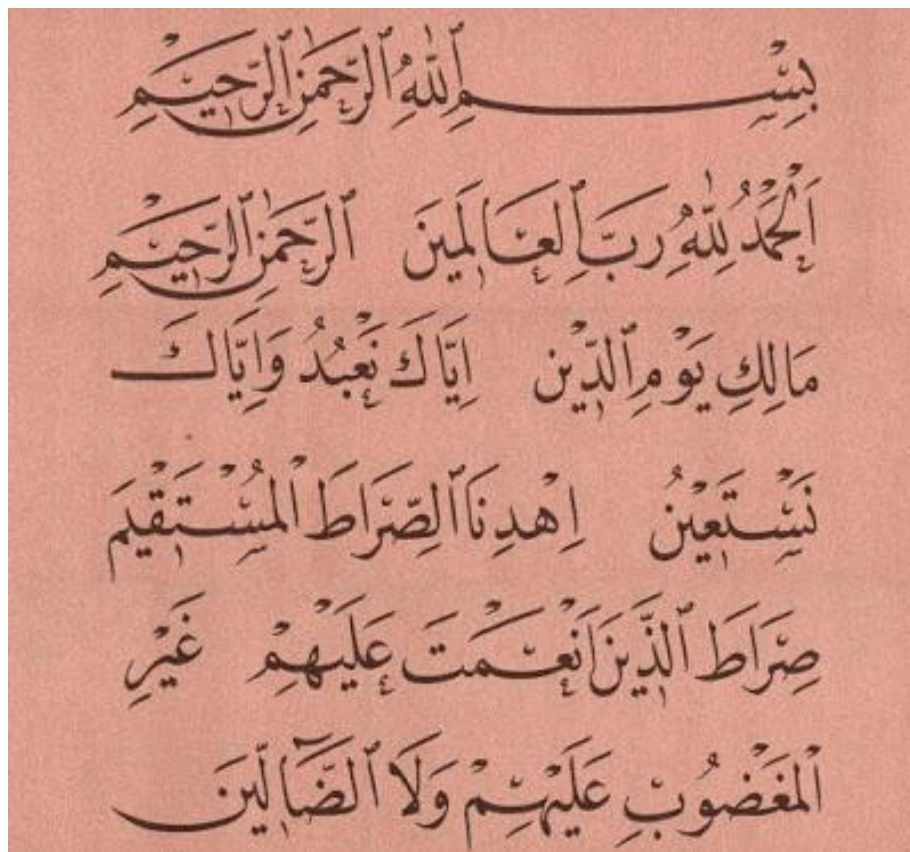 بِسْمِ ٱللّٰهِ ٱلرَّحْمٰنِ ٱلرَّحِيْمِ
اَلْحَمْدُ لِلّٰهِ رَبِّ ٱلعَالَمِينَ ٱلرَّحمٰنِ ٱلرَّحِيْمِ
مَالِكِ يَوْمِ ٱلدِّيْنِ اِيَّاكَ نَعْبُدُ وَاِيَّاكَ
نَسْتَعِيْنُ اِهْدِنَا ٱلصِّرَاطَ الْمُسْتَقْيَمَ
صِرَاطَ ٱلَّذِّينَ اَنْعَمْتَ عَلَيْهِمْ غَيْرِ
الْمَغْضُوْبِ عَلَيْهِمْ وَلَا ٱلضَّآلِّينَ